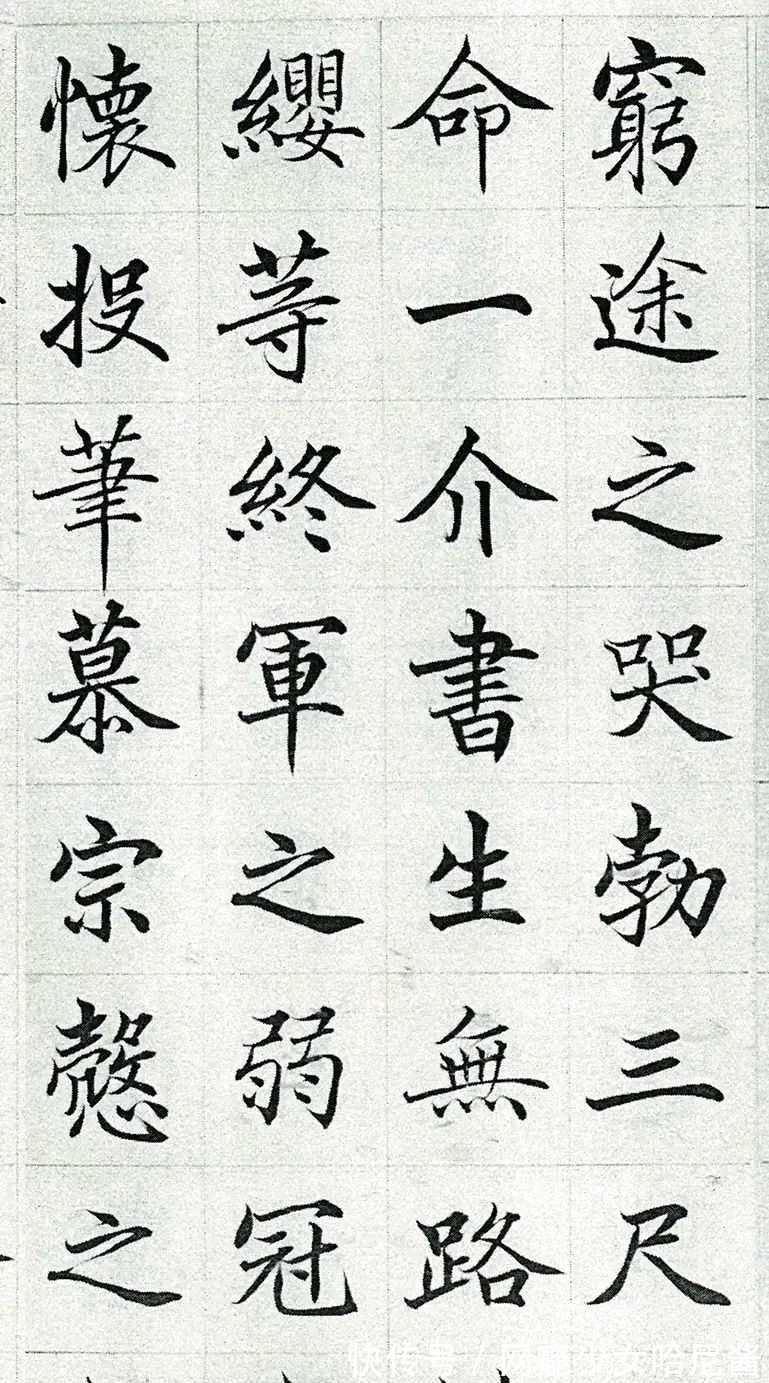 窮途之哭勃三尺
命一介書生無路
纓等終軍之弱冠
懷投筆慕宗慤之
快传号/